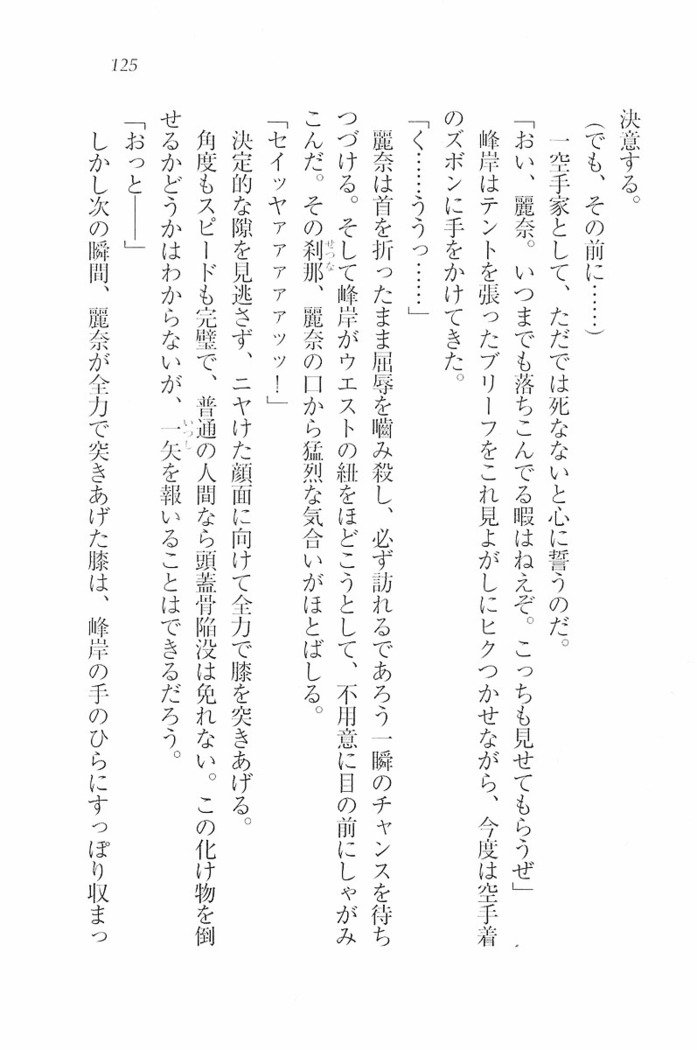 125
決意する。
（でも、その前に……）
一空手家として、ただでは死なないと心に誓うのだ。
「おい、麗奈。いつまでも落ちこんでる暇はねえぞ。こっちも見せてもらうぜ」
峰岸はテントを張ったブリーフをこれ見よがしにヒクつかせながら、今度は空手着
のズボンに手をかけてきた。
「く……ううっ……」
麗奈は首を折ったまま屈辱を嚙み殺し、必ず訪れるであろう一瞬のチャンスを待ち
つづける。そして峰岸がウエストの紐をほどこうとして、不用意に目の前にしゃがみ
こんだ。その刹那、麗奈の口から猛烈な気合いがほとばしる。
せつな
「セイッヤァァァァァッッ！」
決定的な隙を見逃さず、ニヤけた顔面に向けて全力で膝を突きあげる。
角度もスピードも完璧で、普通の人間なら頭蓋骨陥没は免れない。この化け物を倒
せるかどうかはわからないが、一矢を報いることはできるだろう。
いつし
「おっと――」
しかし次の瞬間、麗奈が全力で突きあげた膝は、峰岸の手のひらにすっぽり収まっ